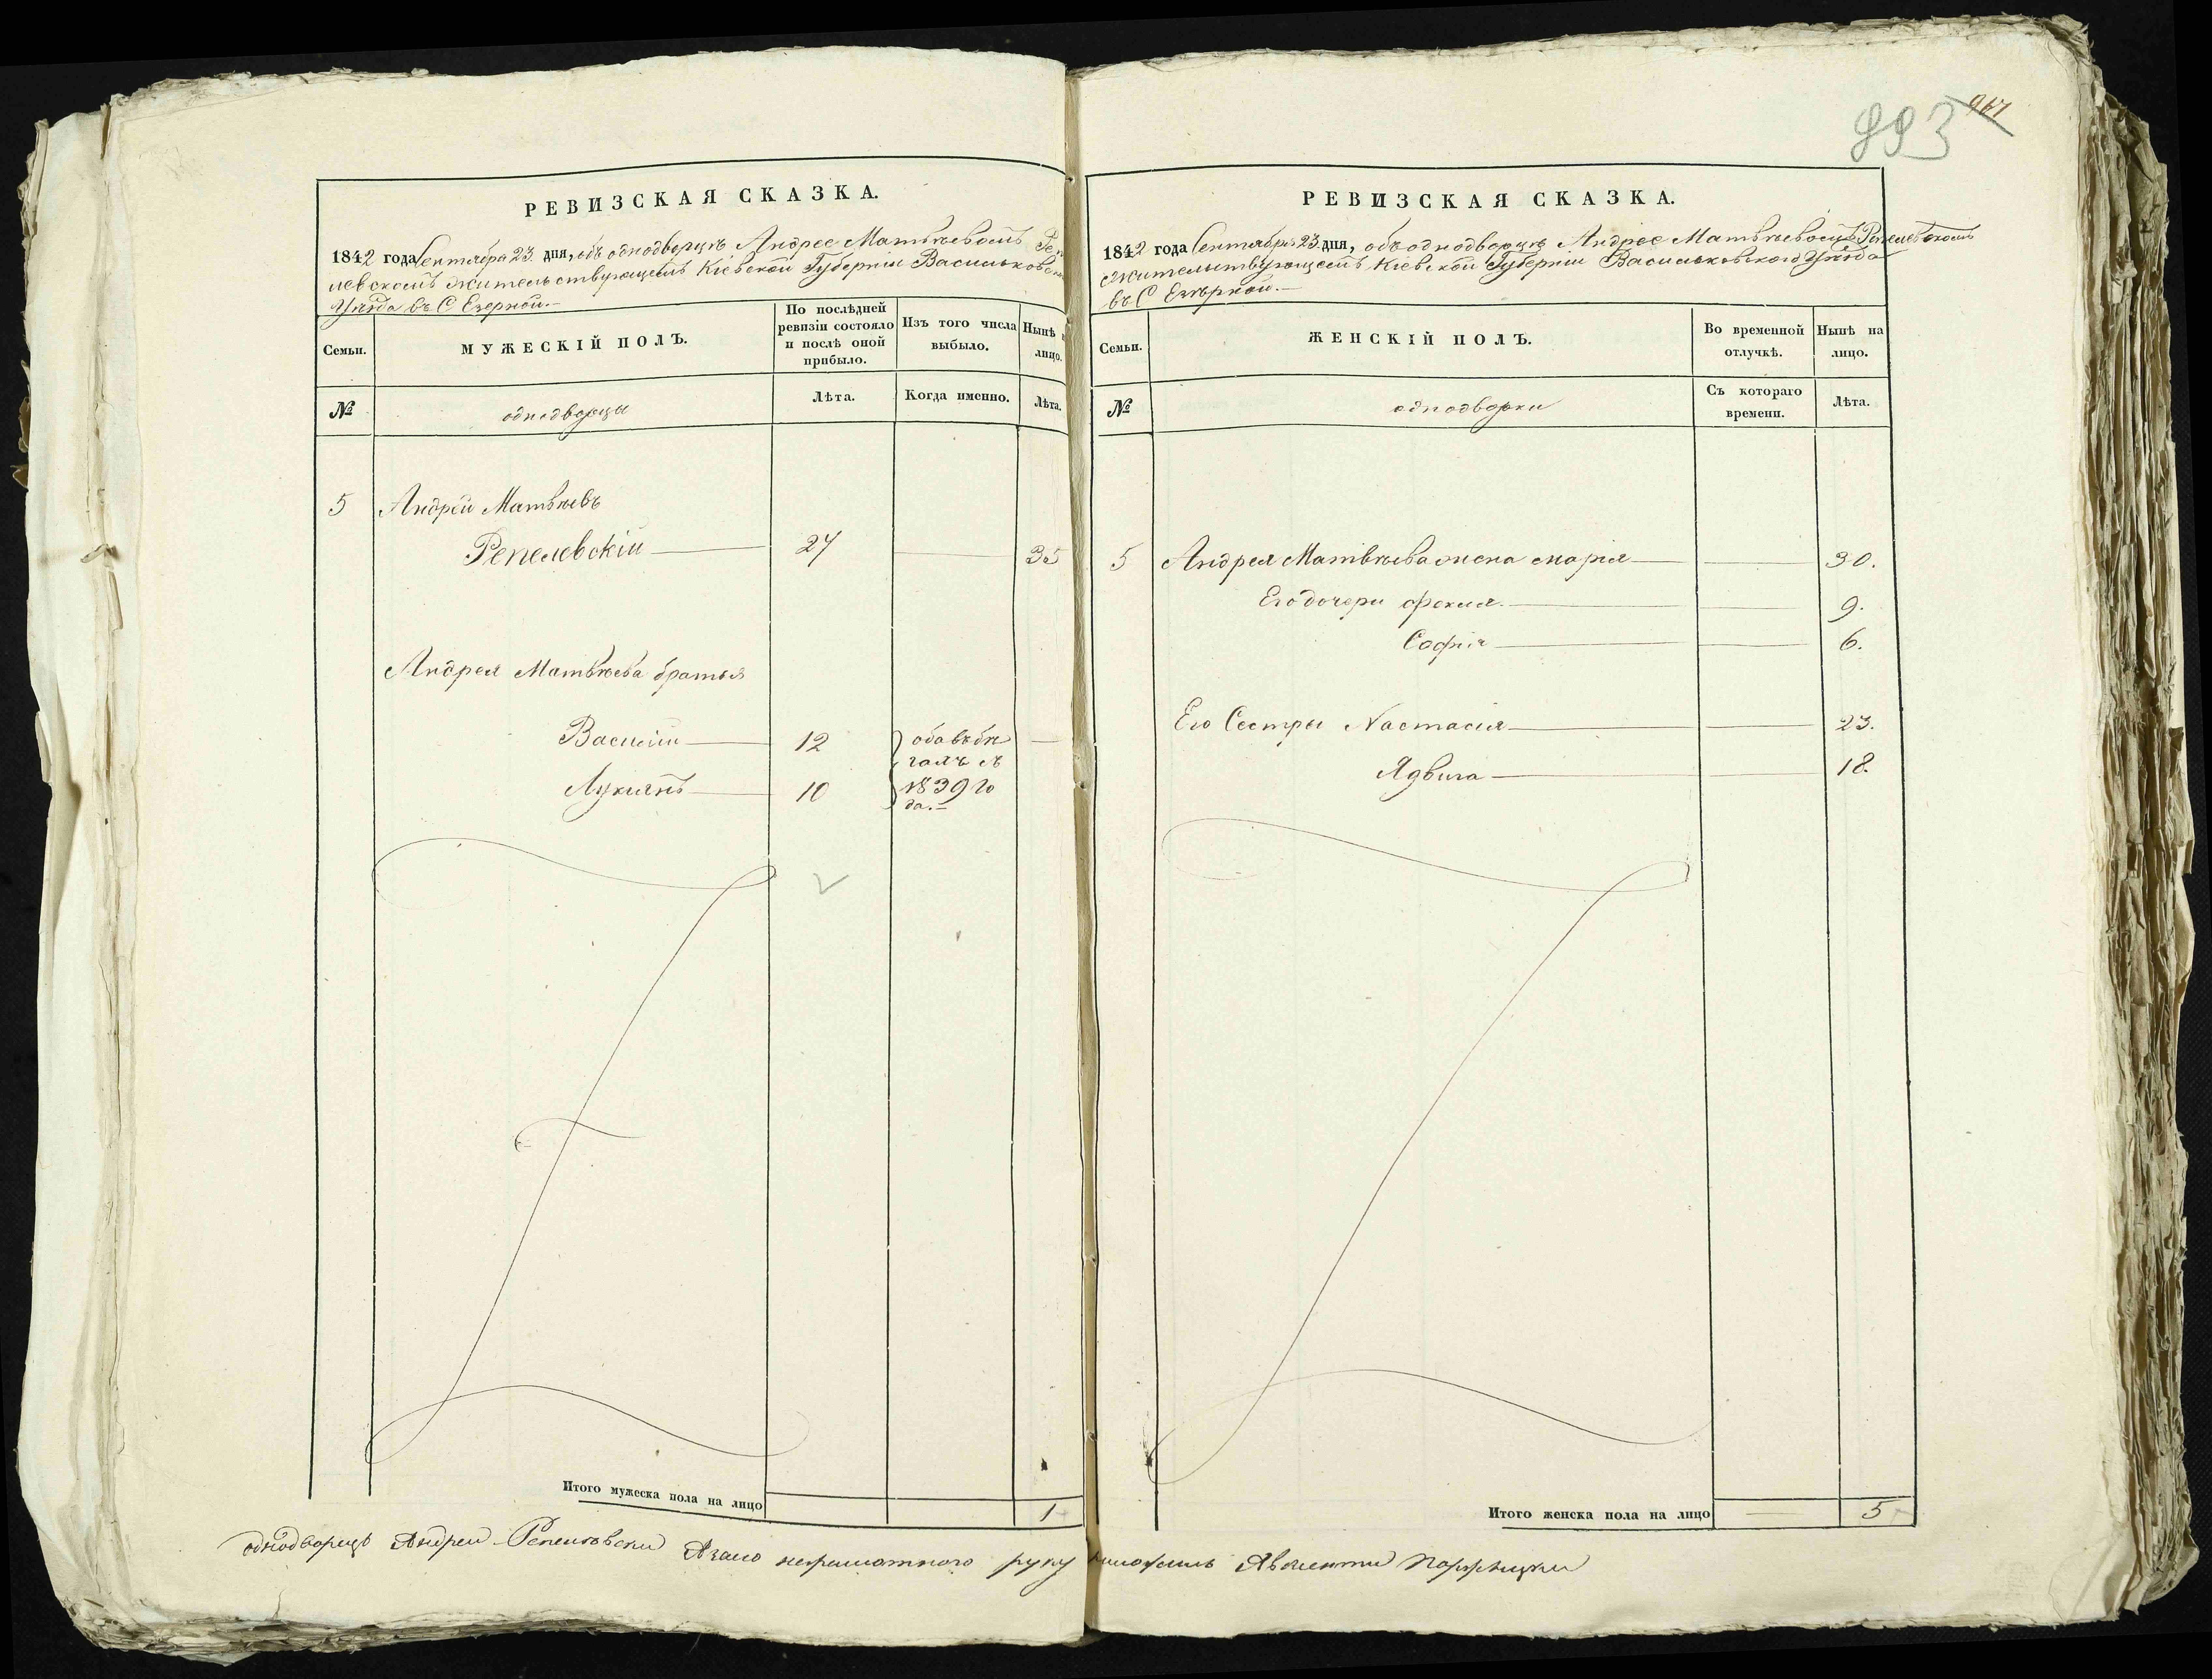 993 967
РЕВИЗСКАЯ СКАЗКА.
1842 года Сентября 23 дня, объ однодворцѣ Андрее Матвѣевомъ Репе
левскомъ жительствующемъ Кіевской Губерніи Васильковска
Уѣзда въ С Езерной.
Семьи.
МУЖЕСКІЙ ПОЛЪ.
По послѣдней ревизіи состояло и послѣ оной прибыло.
Изъ того числа выбыло.
Нынѣ лицо.
№
однодворцы
Лѣта.
Когда именно.
Лѣта.
5 Андрей Матвѣевъ
Репелевскій 27 35
Андрея Матвѣева братья
Василій 12 оба вѣбѣ
галъ съ
Лукіянъ 10 1839 го
да.
Итого мужеска пола на лицо 1
РЕВИЗСКАЯ СКАЗКА.
1842 года Сентября 23 дня, объ однодворцѣ Андрее Матвѣевомъ Репелевскомъ
жительствующемъ Кіевской Губерніи Васильковского Уѣзда
въ С Езѣрной.
Семьи.
ЖЕНСКІЙ ПОЛЪ.
Во временной отлучкѣ.
Нынѣ на лицо.
№
однодворки
Съ котораго времени.
Лѣта.
5 Андрея Матвѣева жена марія 30.
Его дочери фекла. 9.
Софія 6.
Его Сестры Настасія 23.
Ядвига 18.
Итого женска пола на лицо 5
однодворецъ Андреи Репелювски Азаего неграмотного руку приложилъ